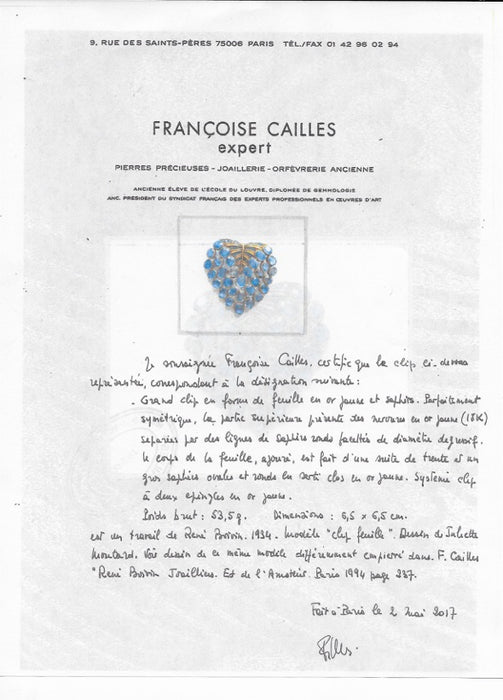 9, RUE DES SAINTS-PÈRES 75006 PARIS TÉL./FAX 01 42 96 02 94
FRANÇOISE CAILLES
expert
PIERRES PRÉCIEUSES - JOAILLERIE - ORFÈVRERIE ANCIENNE
ANCIENNE ÉLÈVE DE L'ÉCOLE DU LOUVRE, DIPLOMÉE DE GEMMOLOGIE
ANC. PRÉSIDENT DU SYNDICAT FRANÇAIS DES EXPERTS PROFESSIONNELS EN ŒUVRES D'ART
Je soussignée Françoise Cailles, certifie que le clip ci-dessus
représenté, correspondant à la désignation suivante :
. Grand clip en forme de feuille en or jaune et saphirs. Parfaitement
symétrique, la partie supérieure présente des nervures en or jaune (18K)
séparées par des lignes de saphirs ronds facettés de diamètre dégressif.
Le corps de la feuille, ajouré, est fait d'une suite de trente et un
gros saphirs ovales et ronds en serti clos en or jaune. Système clip
à deux épingles en or jaune.
Poids brut : 53,5 g. Dimensions : 6,5 x 6,5 cm.
est un travail de René Boivin. 1934. Modèle "clip feuille". Dessin de Juliette
Moutard. Voir dessin de ce même modèle différemment empierré dans. F. Cailles
"René Boivin Joaillier". Ed de l'Amateur. Paris 1994 page 237.
Fait à Paris le 2 Mai 2017